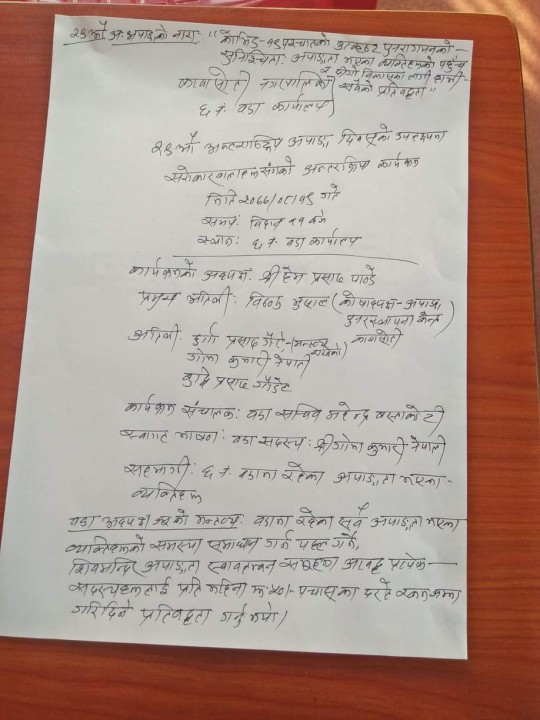 २९औँ अ. अपाङ्गको नारा: "कोभिड-१९ पश्चातको उत्कृष्ट पुनरागमनको -
सुनिश्चितता: अपाङ्गता भएका व्यक्तिहरुको पहुँच
र दिगो विकासका लागी हाम्रो -
सबैको प्रतिबद्धता"
कावासोती नगरपालिका
६ नं. वडा कार्यालय
२९औँ अन्तर्राष्ट्रिय अपाङ्ग दिवसको उपलक्ष्यमा
सरोकारवालाहरु सँगको अन्तरक्रिया कार्यक्रम
मिति २०७७/०८/१८ गते
समय: बिहान ११ बजे
स्थान: ६ नं. वडा कार्यालय
कार्यक्रमको अध्यक्ष: श्री हेम प्रसाद पाण्डे
प्रमुख अतिथी: भुसाल (कोषाध्यक्ष - अपाङ्ग
पुनर्स्थापना केन्द्र
कावासोती)
अतिथी: दुर्गा प्रसाद
कुमारी नेपाली
प्रसाद
कार्यक्रम संचालक: वडा सचिव महेन्द्र बस्ताकोटी
स्वागत भाषण: वडा सदस्य: श्री कुमारी नेपाली
सहभागी: ६ नं. वडामा रहेका अपाङ्गता भएका -
व्यक्तिहरु
वडा अध्यक्ष ज्यूको मन्तव्य: वडामा रहेका सबै अपाङ्गता भएका
व्यक्तिहरुको समस्या समाधान गर्न पहल गर्ने,
शिवमन्दिर अपाङ्गता स्वावलम्बन समूहमा आवद्ध प्रत्येक -
सदस्यहरुलाई प्रति महिना रु ५०।- पचासका दरले रकम जम्मा
गरिदिने प्रतिबद्धता गर्नु भयो।